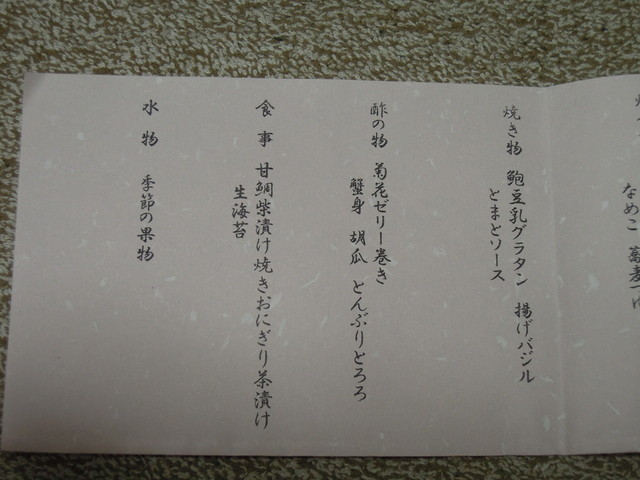 なめこ
焼き物 鮑豆乳グラタン 揚げバジル
とまとソース
酢の物 菊花ゼリー巻き
蟹身 胡瓜 とんぶりとろろ
食事 甘鯛柴漬け焼きおにぎり茶漬け
生海苔
水物 季節の果物